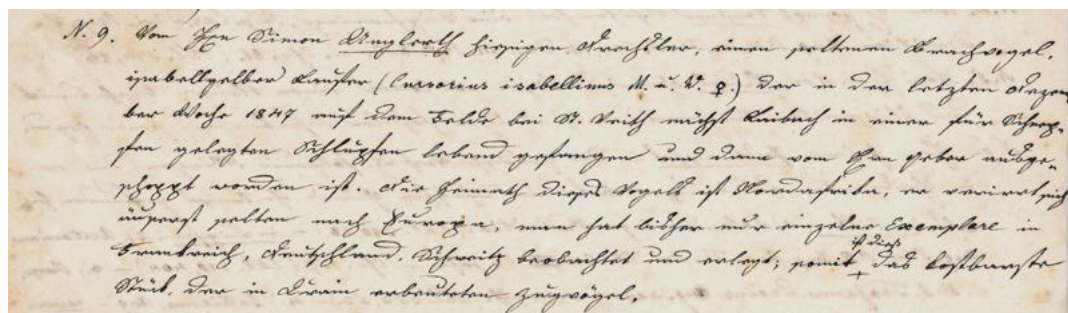 N. 9. Vom Hrn Simon Unglerth hiesigen Drechsler, einen seltenen Brachvogel,
isabellgelber Laufer (Cursorius isabellinus M. u. W. ♀.) der in der letzten Dezem
ber Woche 1847 auf dem Felde bei St. Veith nächst Laibach in einer für Schnep-
fen gelegten Schlupfen lebend gefangen und dann vom Hrn Geber ausge-
schoppt worden ist. Die Heimath dieses Vogels ist Nordafrika, er verirrt sich
äußerst selten nach Europa, man hat bisher nur einzelne Exemplare in
Frankreich, Deutschland, Schweitz beobachtet und erlegt; somit ist dieß das kostbarste
Stück, der in Krain erbeuteten Zugvögel.